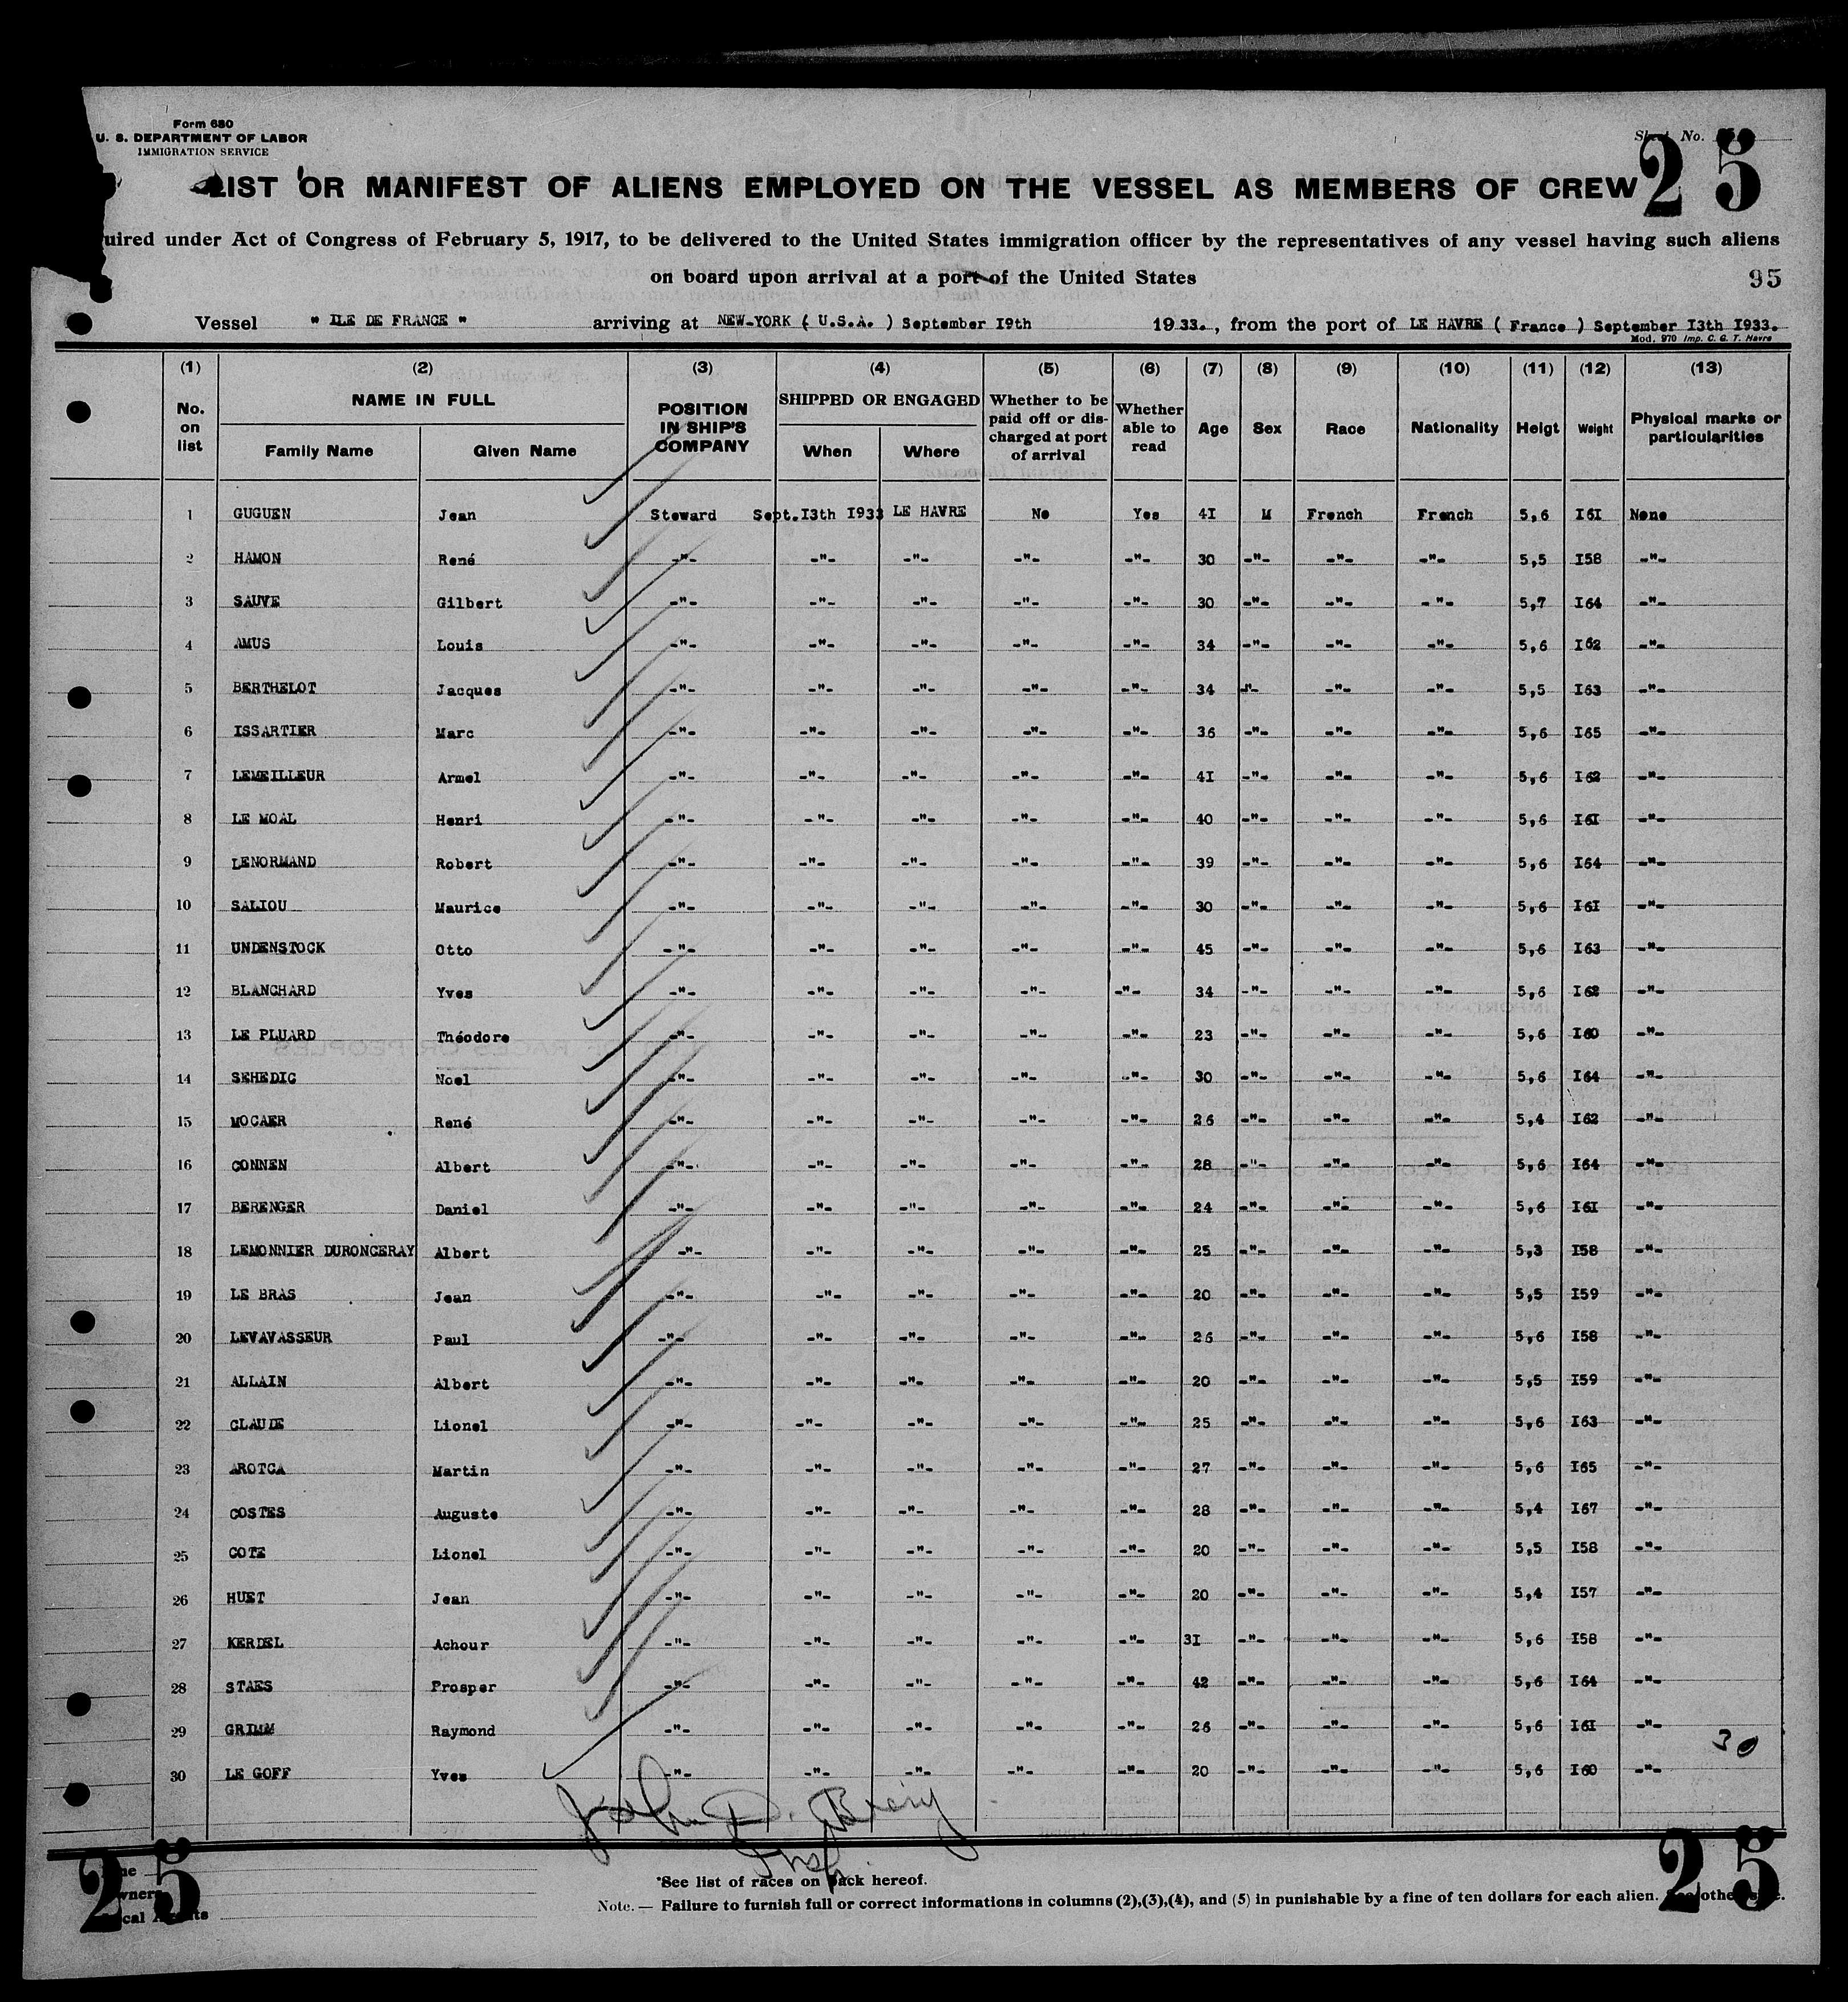 Form 680
U. S. DEPARTMENT OF LABOR
IMMIGRATION SERVICE
Sheet No.
25
LIST OR MANIFEST OF ALIENS EMPLOYED ON THE VESSEL AS MEMBERS OF CREW
uired under Act of Congress of February 5, 1917, to be delivered to the United States immigration officer by the representatives of any vessel having such aliens
on board upon arrival at a port of the United States
95
Vessel " ILE DE FRANCE " arriving at NEW-YORK ( U.S.A. ) September I9th 1933. , from the port of LE HAVRE ( France ) September I3th I933.
Mod. 970 Imp. C. G. T. Havre
(1) (2) (3) (4) (5) (6) (7) (8) (9) (10) (11) (12) (13)
No. on list NAME IN FULL Family Name Given Name POSITION IN SHIP'S COMPANY SHIPPED OR ENGAGED When Where Whether to be paid off or discharged at port of arrival Whether able to read Age Sex Race Nationality Heigt Weight Physical marks or particularities
1 GUGUEN Jean Steward Sept.I3th I933 LE HAVRE No Yes 4I M French French 5,6 I6I None
2 HAMON René -"- -"- -"- -"- -"- 30 -"- -"- -"- 5,5 I58 -"-
3 SAUVE Gilbert -"- -"- -"- -"- -"- 30 -"- -"- -"- 5,7 I64 -"-
4 AMUS Louis -"- -"- -"- -"- -"- 34 -"- -"- -"- 5,6 I62 -"-
5 BERTHELOT Jacques -"- -"- -"- -"- -"- 34 -"- -"- -"- 5,5 I63 -"-
6 ISSARTIER Marc -"- -"- -"- -"- -"- 36 -"- -"- -"- 5,6 I65 -"-
7 LEMEILLEUR Armel -"- -"- -"- -"- -"- 4I -"- -"- -"- 5,6 I62 -"-
8 LE MOAL Henri -"- -"- -"- -"- -"- 40 -"- -"- -"- 5,6 I6I -"-
9 LENORMAND Robert -"- -"- -"- -"- -"- 39 -"- -"- -"- 5,6 I64 -"-
10 SALIOU Maurice -"- -"- -"- -"- -"- 30 -"- -"- -"- 5,6 I6I -"-
11 UNDENSTOCK Otto -"- -"- -"- -"- -"- 45 -"- -"- -"- 5,6 I63 -"-
12 BLANCHARD Yves -"- -"- -"- -"- -"- 34 -"- -"- -"- 5,6 I62 -"-
13 LE PLUARD Théodore -"- -"- -"- -"- -"- 23 -"- -"- -"- 5,6 I60 -"-
14 SEHEDIC Noel -"- -"- -"- -"- -"- 30 -"- -"- -"- 5,6 I64 -"-
15 MOCAER René -"- -"- -"- -"- -"- 26 -"- -"- -"- 5,4 I62 -"-
16 CONNEN Albert -"- -"- -"- -"- -"- 28 -"- -"- -"- 5,6 I64 -"-
17 BERENGER Daniel -"- -"- -"- -"- -"- 24 -"- -"- -"- 5,6 I6I -"-
18 LEMONNIER DURONCERAY Albert -"- -"- -"- -"- -"- 25 -"- -"- -"- 5,3 I58 -"-
19 LE BRAS Jean -"- -"- -"- -"- -"- 20 -"- -"- -"- 5,5 I59 -"-
20 LEVAVASSEUR Paul -"- -"- -"- -"- -"- 26 -"- -"- -"- 5,6 I58 -"-
21 ALLAIN Albert -"- -"- -"- -"- -"- 20 -"- -"- -"- 5,5 I59 -"-
22 CLAUDE Lionel -"- -"- -"- -"- -"- 25 -"- -"- -"- 5,6 I63 -"-
23 AROTCA Martin -"- -"- -"- -"- -"- 27 -"- -"- -"- 5,6 I65 -"-
24 COSTES Auguste -"- -"- -"- -"- -"- 28 -"- -"- -"- 5,4 I67 -"-
25 COTE Lionel -"- -"- -"- -"- -"- 20 -"- -"- -"- 5,5 I58 -"-
26 HUET Jean -"- -"- -"- -"- -"- 20 -"- -"- -"- 5,4 I57 -"-
27 KERDEL Achour -"- -"- -"- -"- -"- 3I -"- -"- -"- 5,6 I58 -"-
28 STAES Prosper -"- -"- -"- -"- -"- 42 -"- -"- -"- 5,6 I64 -"-
29 GRIMM Raymond -"- -"- -"- -"- -"- 26 -"- -"- -"- 5,6 I6I -"-
30
30 LE GOFF Yves -"- -"- -"- -"- -"- 20 -"- -"- -"- 5,6 I60 -"-
John D.
25 25
*See list of races on back hereof.
Note. — Failure to furnish full or correct informations in columns (2),(3),(4), and (5) in punishable by a fine of ten dollars for each alien.